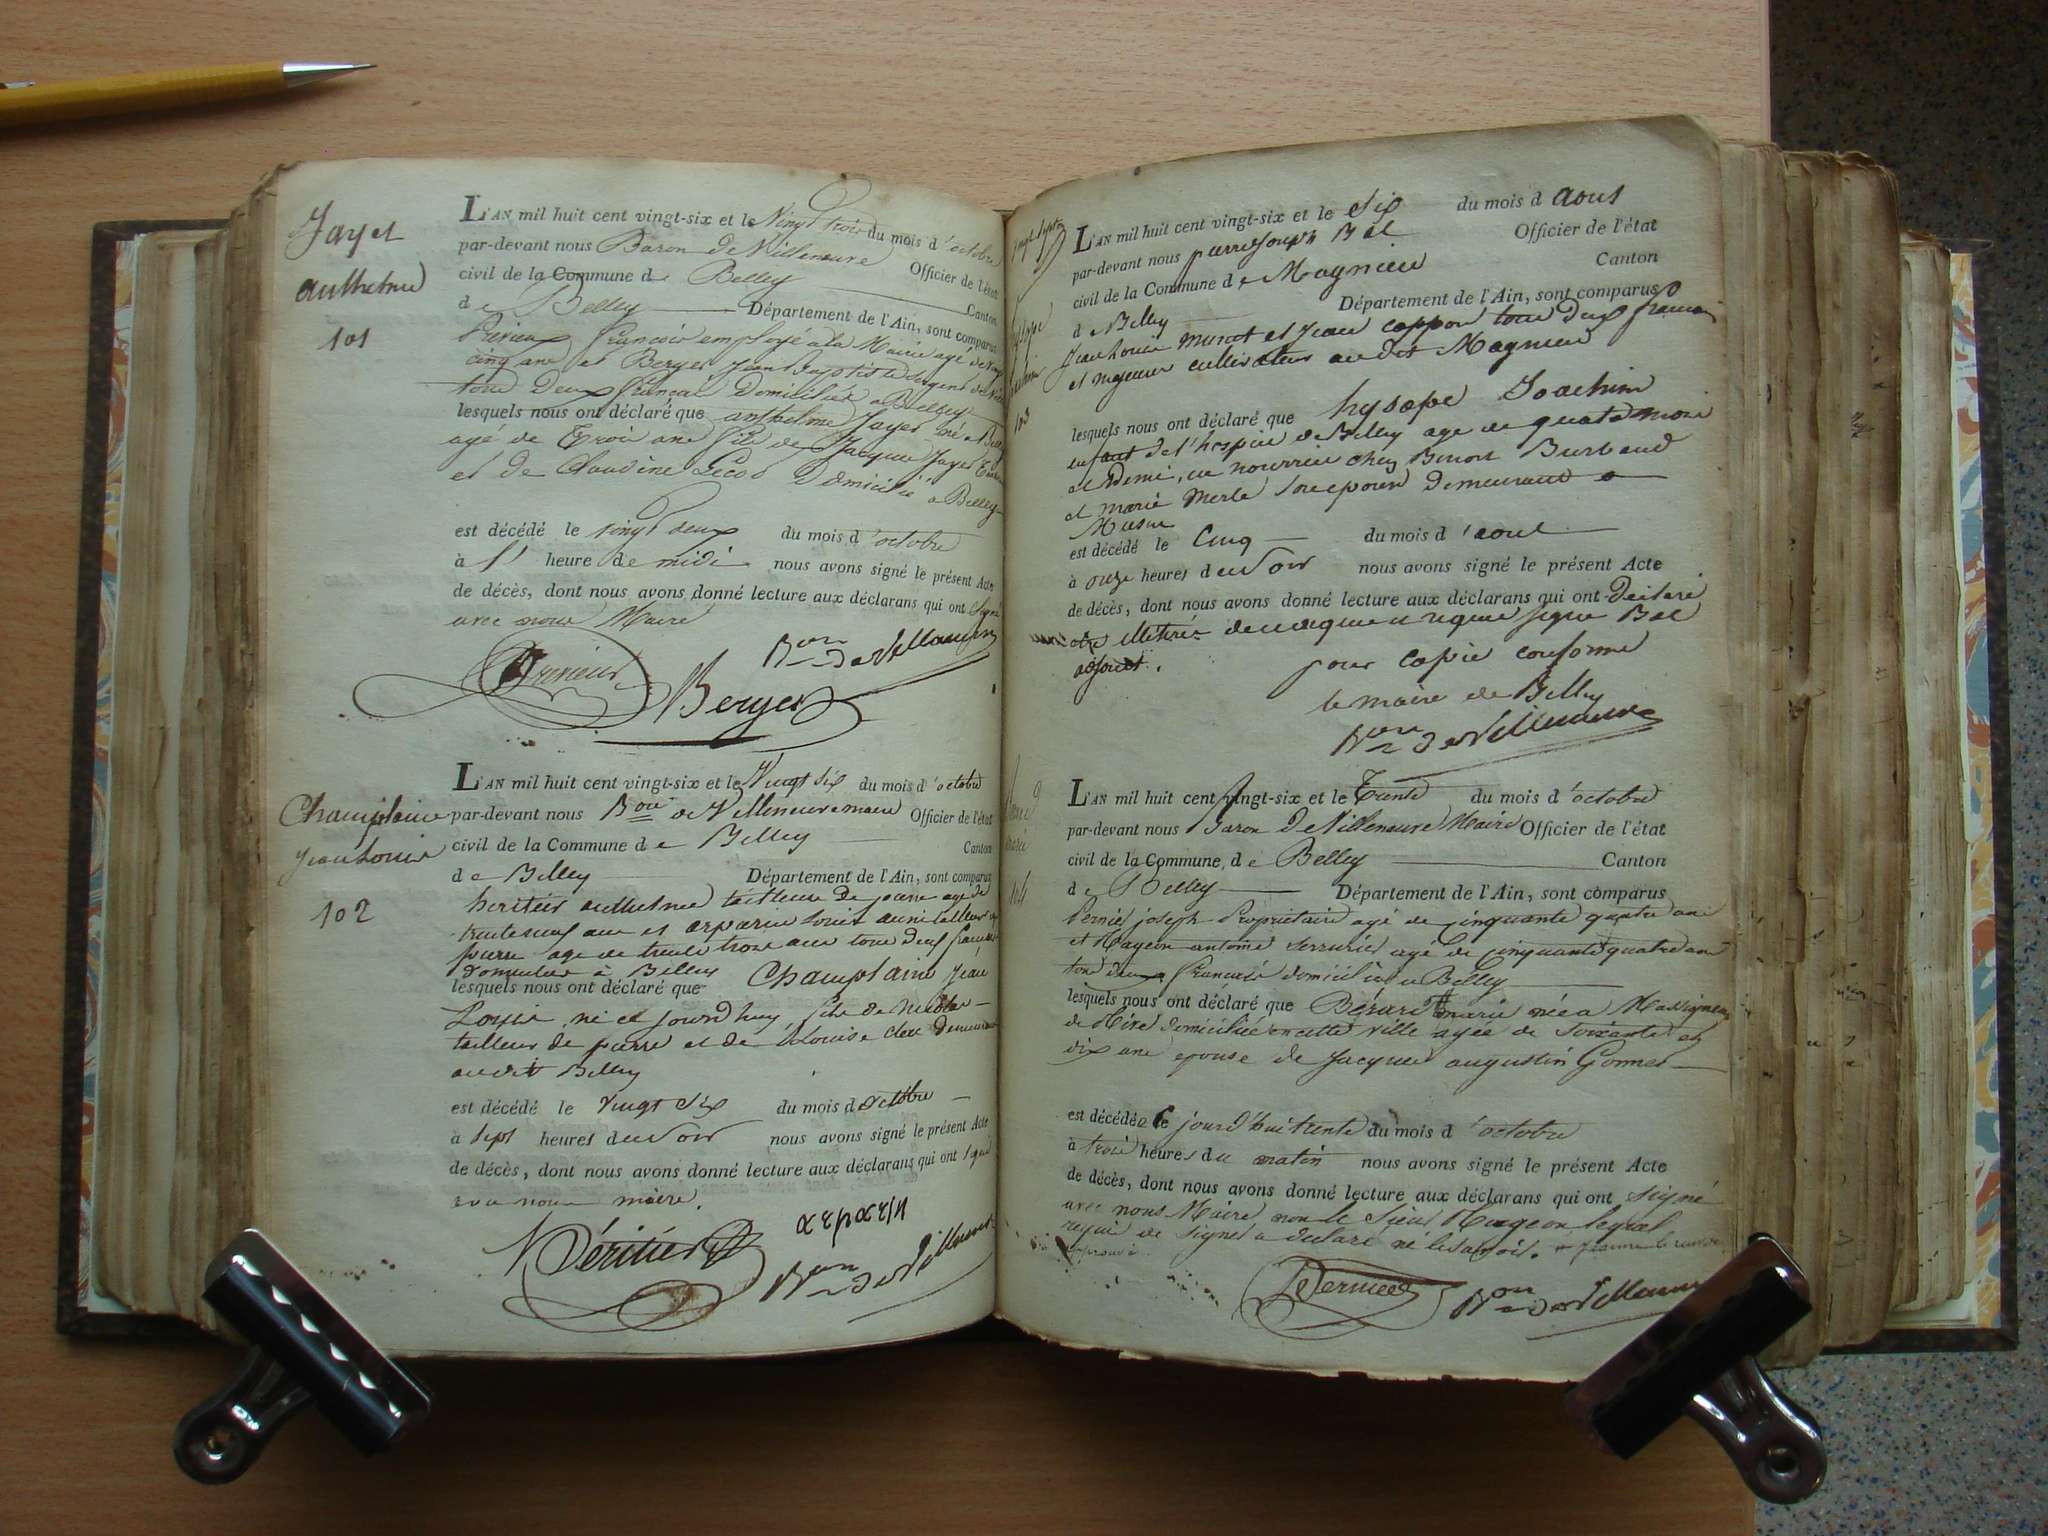 Jayet
anthelme
101
L'AN mil huit cent vingt-six et le Vingt trois du mois d'octobre
par-devant nous Baron de Villeneuve Officier de l'état
civil de la Commune de Belley Canton
de Belley Département de l'Ain, sont comparus
françois employé a la Mairie agé de
cinq ans et Berger Jean Baptiste Sergent de
tous Deux français Domiciliés a Belley
lesquels nous ont déclaré que anthelme Jayet né a Belley
agé de trois ans fils de Jacques Jayet
et de Claudine Domicilié a Belley
est décédé le vingt deux du mois d'octobre
à l' heure de midi nous avons signé le présent Acte
de décès, dont nous avons donné lecture aux déclarans qui ont signé
avec nous Maire
Bon de Villeneuve
Berger
Champlaine
Jean Louis
102
L'AN mil huit cent vingt-six et le Vingt six du mois d'octobre
par-devant nous Bon de Villeneuve maire Officier de l'état
civil de la Commune de Belley Canton
de Belley Département de l'Ain, sont comparus
heritier anthelme tailleur de pierre agé de
trente neuf ans et arparin Louis aussi tailleur de
pierre age de trente trois ans tous deux français
domiciliés à Belley
lesquels nous ont déclaré que Champlaine Jean
Louis, né ce jourd'huy fils de
tailleur de pierre et de Louise demeurant
audit Belley
est décédé le vingt six du mois d'octobre
à sept heures du soir nous avons signé le présent Acte
de décès, dont nous avons donné lecture aux déclarans qui ont signé
avec nous maire.
Héritier arparin
Bon de Villeneuve
103
L'AN mil huit cent vingt-six et le six du mois d'aout
par-devant nous pierre joseph Bal Officier de l'état
civil de la Commune de Magnieu Canton
de Belley Département de l'Ain, sont comparus
Jean Louis murat et Jean cappon tous deux français
et majeurs cultivateurs audit Magnieu
lesquels nous ont déclaré que hysope Joachim
enfant de l'hospice de Belley age de quatre mois
et demi, en nourrice chez Benoit
et marie merle son epouse demeurant a
est décédé le cinq du mois d'aout
à onze heures du soir nous avons signé le présent Acte
de décès, dont nous avons donné lecture aux déclarans qui ont déclaré
etre illitérés de ce enquis et requis signé Bal
adjoint.
pour copie conforme
le maire de Belley
Bon de Villeneuve
104
L'AN mil huit cent vingt-six et le trente du mois d'octobre
par-devant nous Baron de Villeneuve Maire Officier de l'état
civil de la Commune de Belley Canton
de Belley Département de l'Ain, sont comparus
Pernier joseph Propriétaire agé de cinquante quatre ans
et Mageon antoine serrurier agé de cinquante quatre ans
tous deux français domiciliés a Belley
lesquels nous ont déclaré que Bérard marie née a Massignieu
de Rive domiciliée en cette ville agée de soixante et
dix ans epouse de Jacques augustin Gonnet
est décédée ce jourd'hui trente du mois d'octobre
à trois heures du matin nous avons signé le présent Acte
de décès, dont nous avons donné lecture aux déclarans qui ont signé
avec nous Maire non le sieur Mageon lequel
requis de signer a déclaré ne le savoir.
Bon de Villeneuve